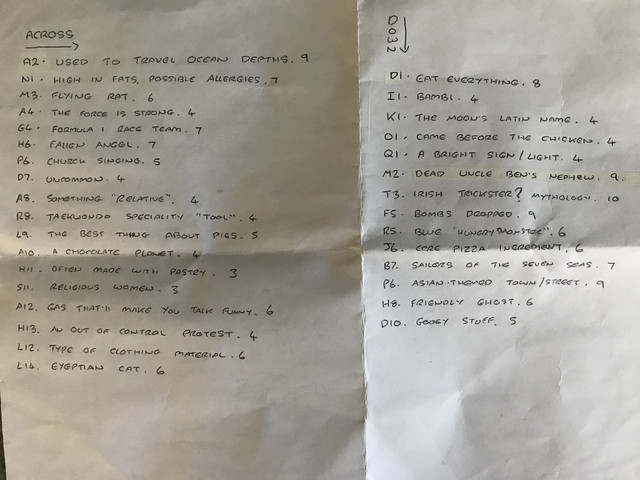 ACROSS
A2. USED TO TRAVEL OCEAN DEPTHS. 9
N1. HIGH IN FATS, POSSIBLE ALLERGIES. 7
M3. FLYING RAT. 6
A4. THE FORCE IS STRONG. 4
G4. FORMULA 1 RACE TEAM. 7
H6. FALLEN ANGEL. 7
P6. CHURCH SINGING. 5
D7. UNCOMMON. 4
A8. SOMETHING "RELATIVE". 4
R8. TAEKWONDO SPECIALITY "TOOL". 4
L9. THE BEST THING ABOUT PIGS. 5
A10. A CHOCOLATE PLANET. 4
H11. OFTEN MADE WITH PASTRY. 3
S11. RELIGIOUS WOMEN. 3
A12. GAS THAT'll MAKE YOU TALK FUNNY. 6
H13. AN OUT OF CONTROL PROTEST. 4
L12. TYPE OF CLOTHING MATERIAL. 6
L14. EYEPTIAN CAT. 6
DOWN
D1. EAT EVERYTHING. 8
I1. BAMBI. 4
K1. THE MOON'S LATIN NAME. 4
O1. CAME BEFORE THE CHICKEN. 4
Q1. A BRIGHT SIGN/LIGHT. 4
M2. DEAD UNCLE BEN'S NEPHEW. 9.
T3. IRISH TRICKSTER? MYTHOLOGY. 10
F5. BOMBS DROPPED. 9
R5. BLUE "HUNGRY MONSTER". 6
J6. CORE PIZZA INGREDIENT. 6
B7. SAILORS OF THE SEVEN SEAS. 7
P6. ASIAN-THEMED TOWN/STREET. 9
H8. FRIENDLY GHOST. 6
D10. GOOEY STUFF. 5